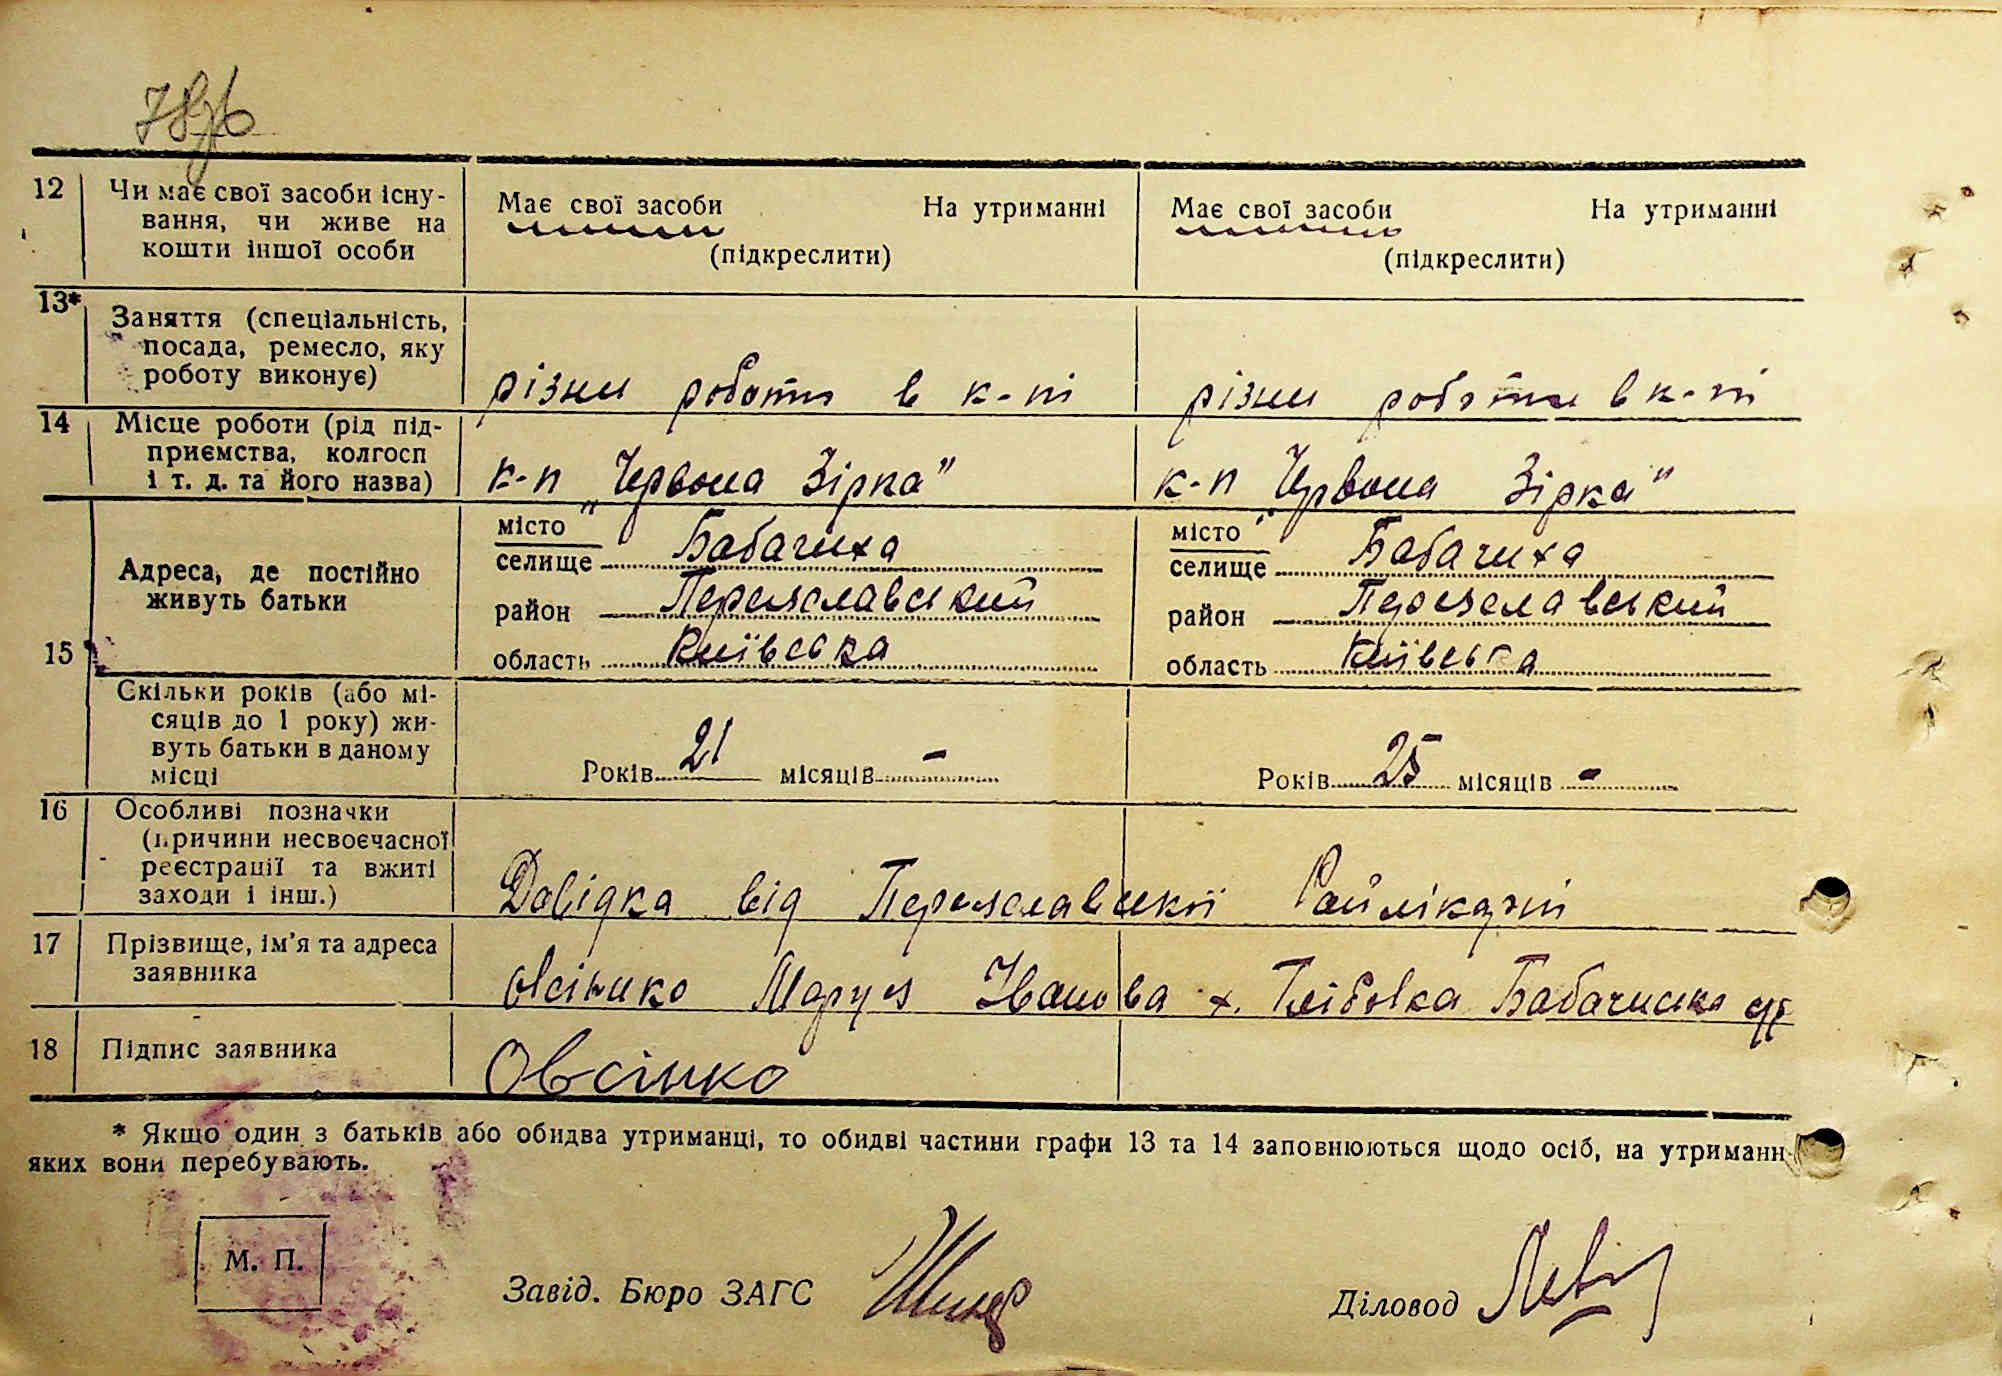 78 зв
12 Чи має свої засоби існу-
вання, чи живе на
кошти іншої особи
Має свої засоби На утриманні
(підкреслити)
Має свої засоби На утриманні
(підкреслити)
13* Заняття (спеціальність,
посада, ремесло, яку
роботу виконує)
різни роботи в к-пі
різни роботи в к-пі
14 Місце роботи (рід під-
приємства, колгосп
і т. д. та його назва)
к-п „Червона Зірка"
к-п „Червона Зірка"
15 Адреса, де постійно
живуть батьки
місто
селище Бабачиха
район Переяславский
область Київська
місто
селище Бабачиха
район Переяславський
область Київська
Скільки років (або мі-
сяців до 1 року) жи-
вуть батьки в даному
місці
Років 21 місяців -
Років 25 місяців -
16 Особливі позначки
(причини несвоєчасної
реєстрації та вжиті
заходи і інш.)
Довідка від Переяславської Райлікарні
17 Прізвище, ім'я та адреса
заявника
Овсінко Маруся Іванова х. Глібовка Бабачиська с/р
18 Підпис заявника
Овсінко
* Якщо один з батьків або обидва утриманці, то обидві частини графи 13 та 14 заповнюються щодо осіб, на утриманн
яких вони перебувають.
М. П.
Завід. Бюро ЗАГС
Діловод